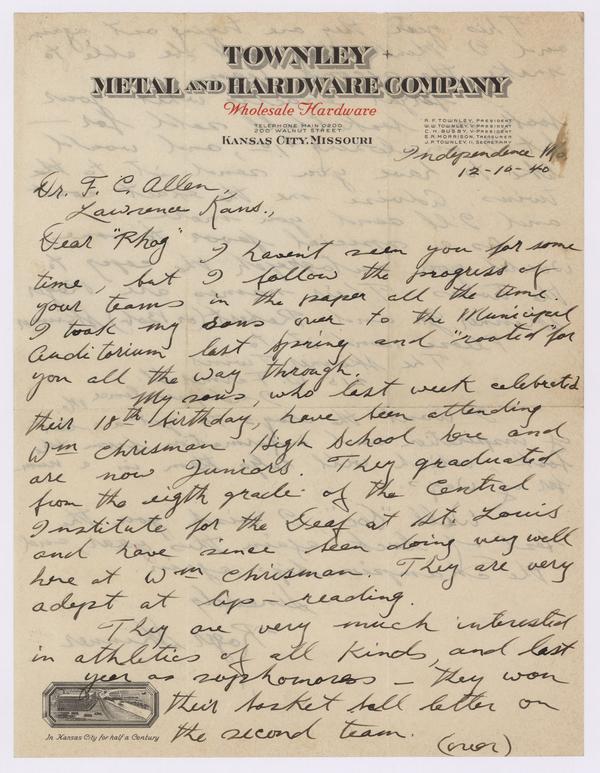 TOWNLEY
METAL AND HARDWARE COMPANY
Wholesale Hardware
TELEPHONE MAIN 0200
200 WALNUT STREET
KANSAS CITY, MISSOURI
R.F. TOWNLEY, PRESIDENT
W.W. TOWNLEY, V-PRESIDENT
C.H. BUSBY, V-PRESIDENT
E.R. MORRISON, TREASURER
J.P. TOWNLEY, II, SECRETARY
Independence Mo
12-10-40
Dr. F. C. Allen,
Lawrence Kans.,
Dear "Phog"
I haven't seen you for some
time, but I follow the progress of
your teams in the paper all the time.
I took my sons over to the Municipal
Auditorium last Spring and "rooted" for
you all the way through.
My sons, who last week celebrated
their 18th birthday, have been attending
Wm Chrisman High School here and
are now Juniors. They graduated
from the eigth grade of the Central
Institute for the Deaf at St. Louis
and have since been doing very well
here at Wm Chrisman. They are very
adept at lip-reading.
They are very much interested
in athletics of all kinds, and last
year as sophomores - they won
their basket ball letter on
the second team.
(over)
In Kansas City for half a Century